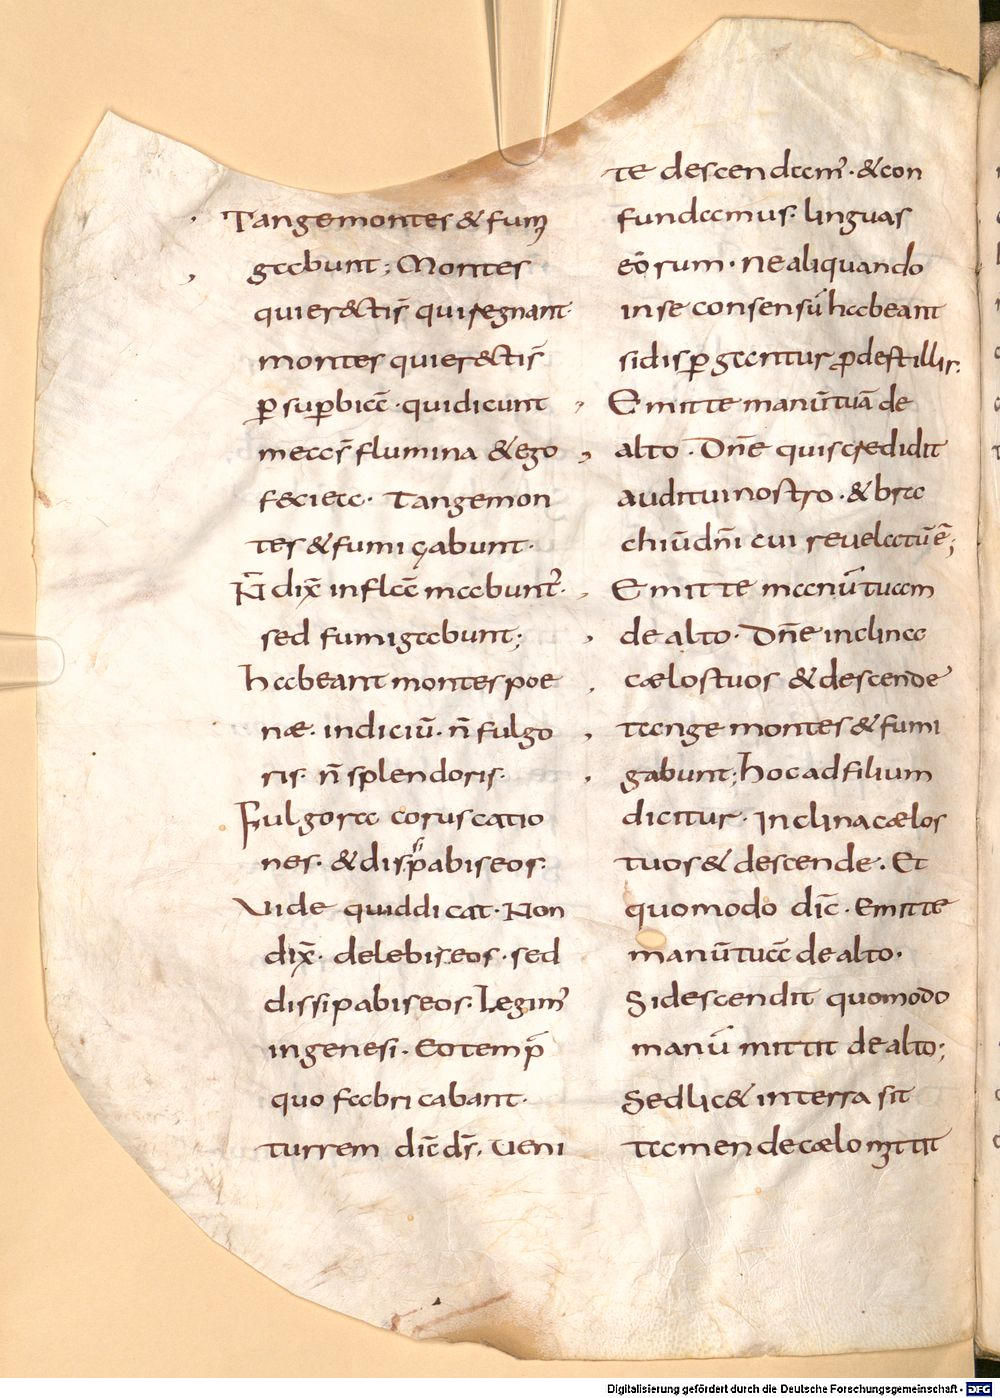 Tange montes & fumi
gabunt; Montes
qui erectis qui regnant·
montes qui erectis̄
p̱ sup̱biā· qui dicunt
mea s̄ flumina & ego
feci ea· Tange mon
tes & fumiçabunt·
N̄ dix̄ inflāmabunt̄·
sed fumigabunt;
habeant montes poe
næ· indiciū· n̄ fulgo
ris· n̄ splendoris·
Fulgora coruscatio
nes· & disp̄abis eos·
Vide quid dicat· Non
dix̄· delebis eos· sed
dissipabis eos· Legim̄
in genesi· Eo temp̄
quo fabricabant·
turrem dic̄ ds̄· Veni
te descendam̄· & con
fundamus· linguas
eorum· ne aliquando
in se consensū habeant
sidisp̱gantur p̱destillis·
Emitte manū tuā de
alto· Dn̄e quis credidit
auditui nostro· & bra
chiū dn̄i cui revelatū ē;
Emitte manū tuam
de alto· Dn̄e inclina
cælos tuos & descende
tange montes & fumi
gabunt; hoc ad filium
dicitur· Inclina cælos
tuos & descende· Et
quomodo dic̄· Emitte
manū tuā de alto·
Si descendit quomodo
manū mittit de alto;
Sed lic& in terra sit
tamen de cælo mittit
Digitalisierung gefördert durch die Deutsche Forschungsgemeinschaft - DFG